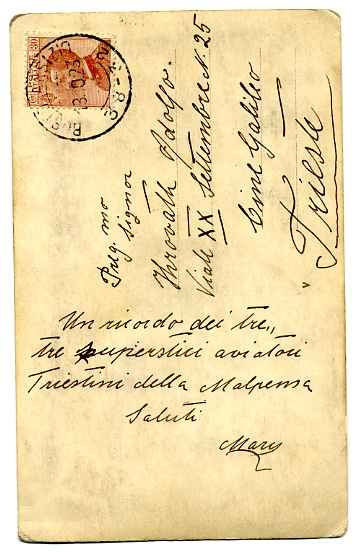 Preg. mo
Signor
Throvath Adolfo.
Viale XX Settembre N. 25
Cine Galileo
Trieste
Un ricordo dei tre,,
tre superstici aviatori
Triestini della Malpensa
Saluti
Mary